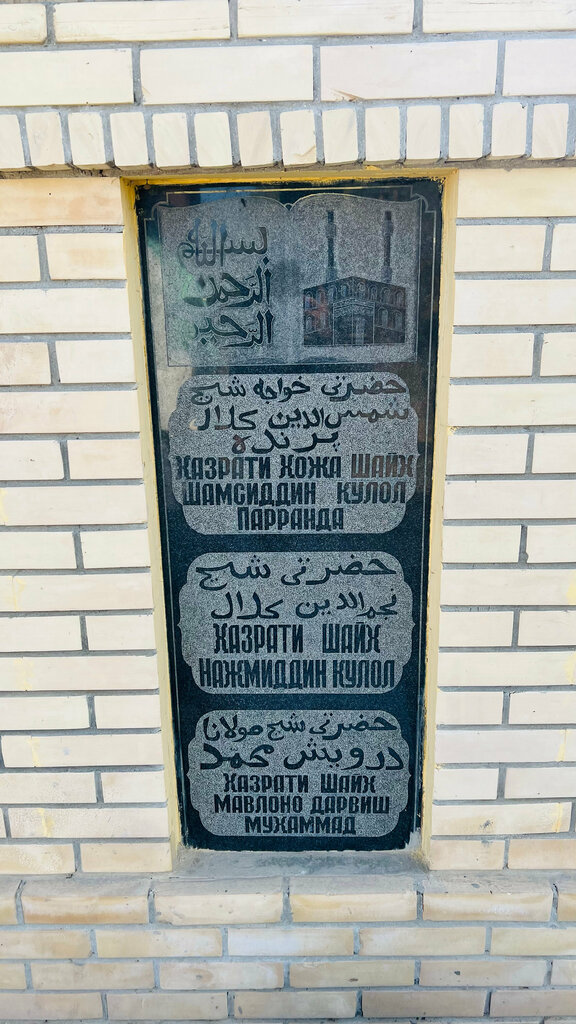 بسم الله
الرحمن
الرحیم
حضرتی خواجه شیخ
شمس الدین کلال
پرنده
ҲАЗРАТИ ХОЖА ШАЙХ
ШАМСИДДИН КУЛОЛ
ПАРРАНДА
حضرتی شیخ
نجم الدین کلال
ҲАЗРАТИ ШАЙХ
НАЖМИДДИН КУЛОЛ
حضرتی شیخ مولانا
درویش محمد
ҲАЗРАТИ ШАЙХ
МАВЛОНО ДАРВИШ
МУҲАММАД